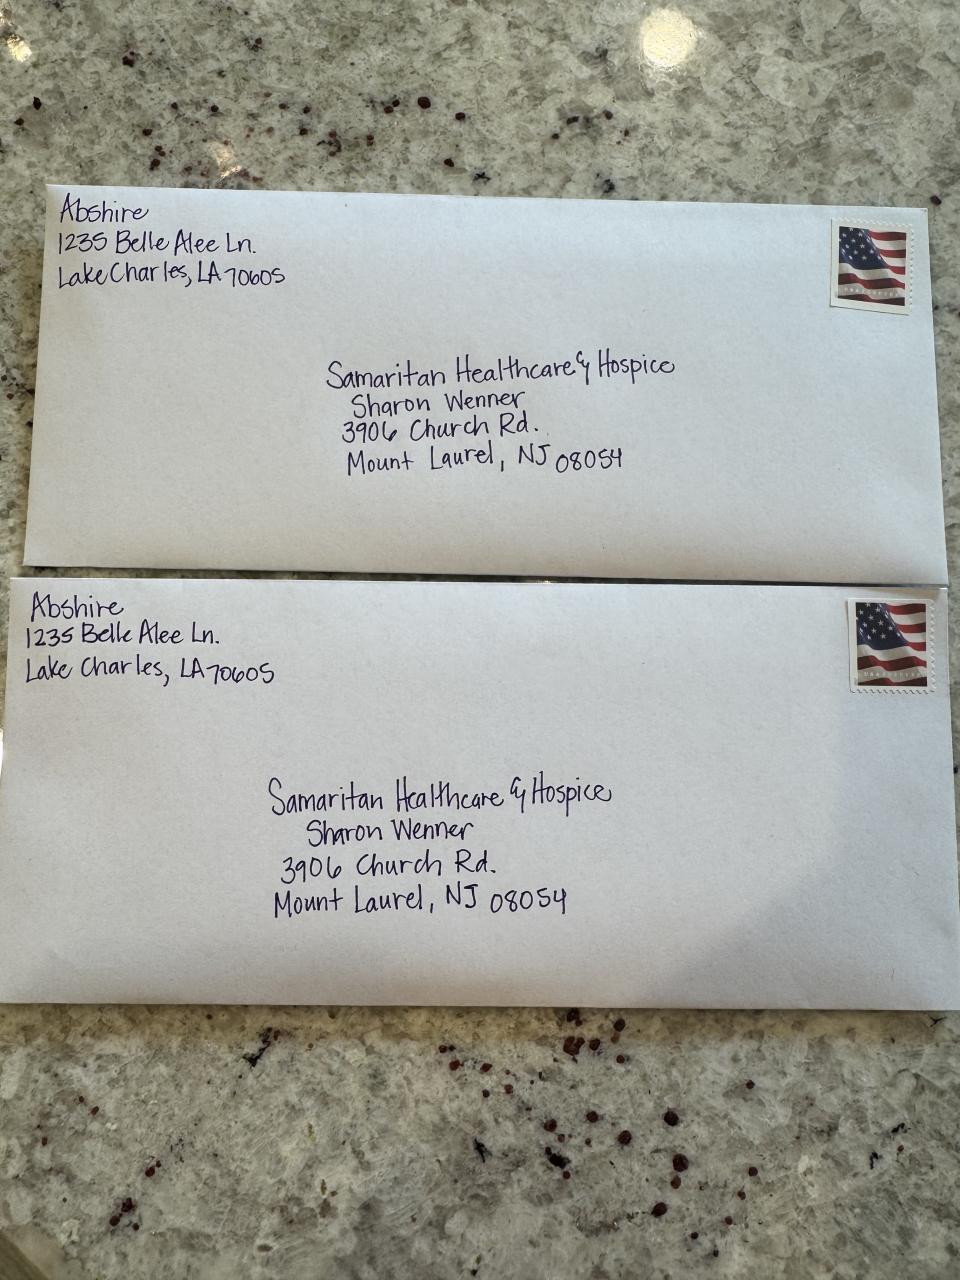 Abshire
1235 Belle Alee Ln.
Lake Charles, LA 70605
Samaritan Healthcare & Hospice
Sharon Wenner
3906 Church Rd.
Mount Laurel, NJ 08054
Abshire
1235 Belle Alee Ln.
Lake Charles, LA 70605
Samaritan Healthcare & Hospice
Sharon Wenner
3906 Church Rd.
Mount Laurel, NJ 08054